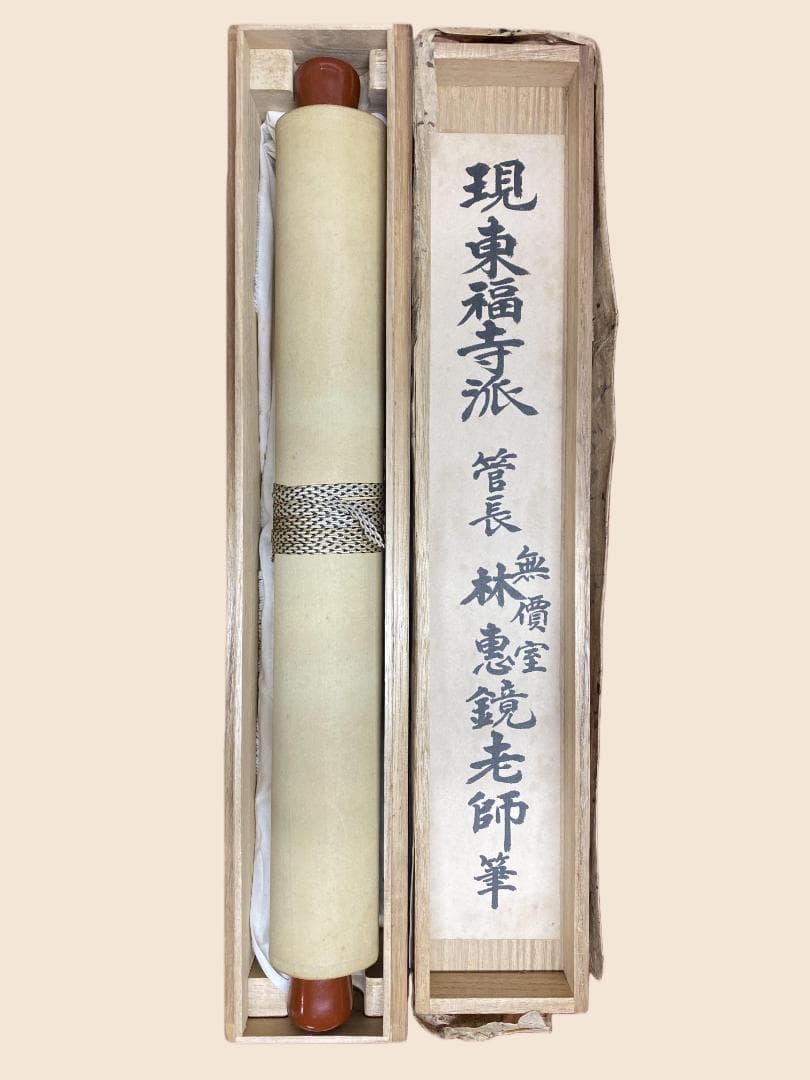 現東福寺派管長林惠鏡老師筆
無價室